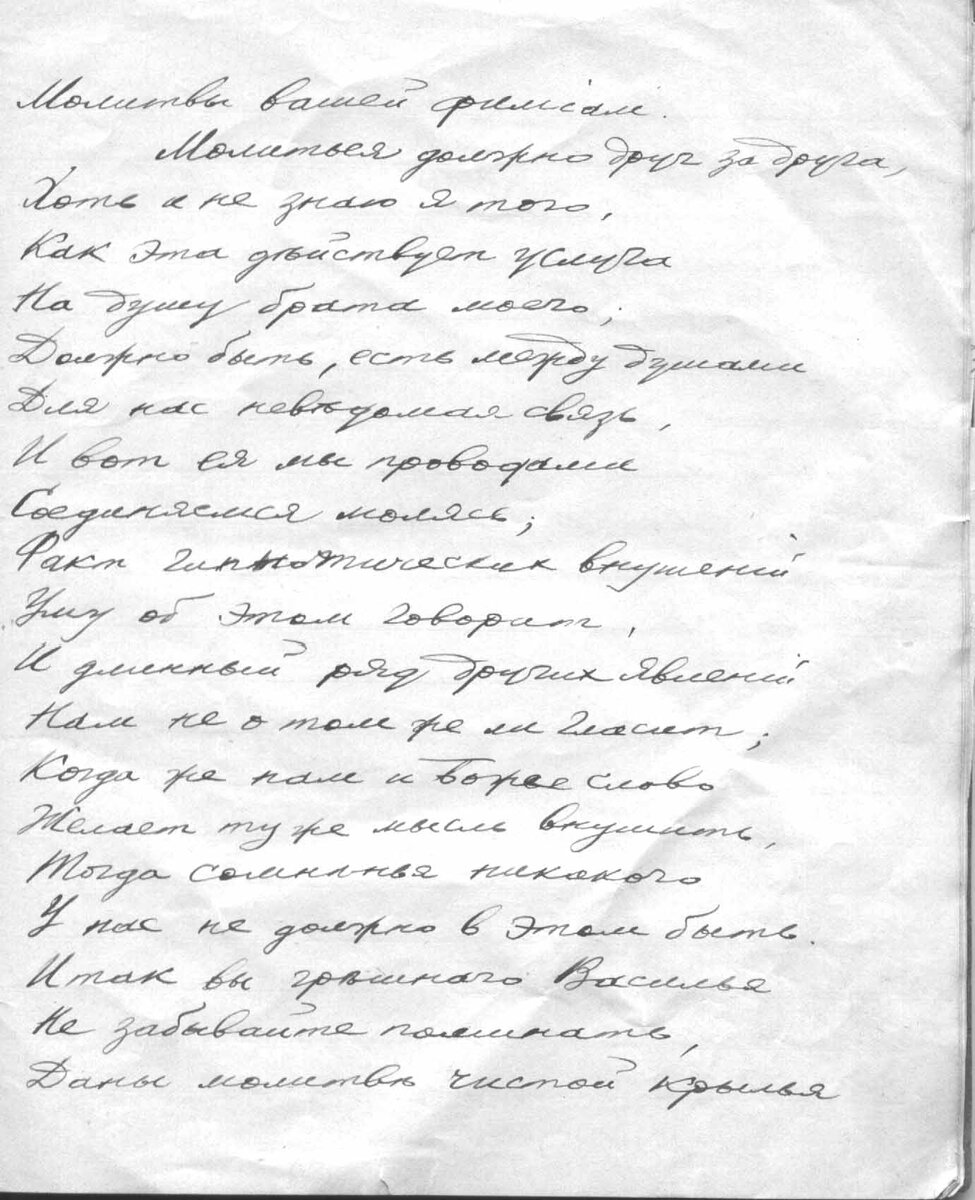 Молитвы вашей фиміам.
Молиться должно друг за друга,
Хоть а не знаю я того,
Как эта дѣйствует услуга
На душу брата моего;
Должно быть, есть между душами
Для нас невѣдомая связь,
И вот ея мы проводами
Соединяемся молясь;
Факт гипнотических внушеній
Уму об этом говорит,
И длинный ряд других явленій
Нам не о том же ли гласит;
Когда же нам и Божье слово
Желает ту же мысль внушить,
Тогда сомнѣнья никакого
У нас не должно в этом быть.
Итак вы грѣшнаго Василья
Не забывайте поминать,
Даны молитвѣ чистой крылья